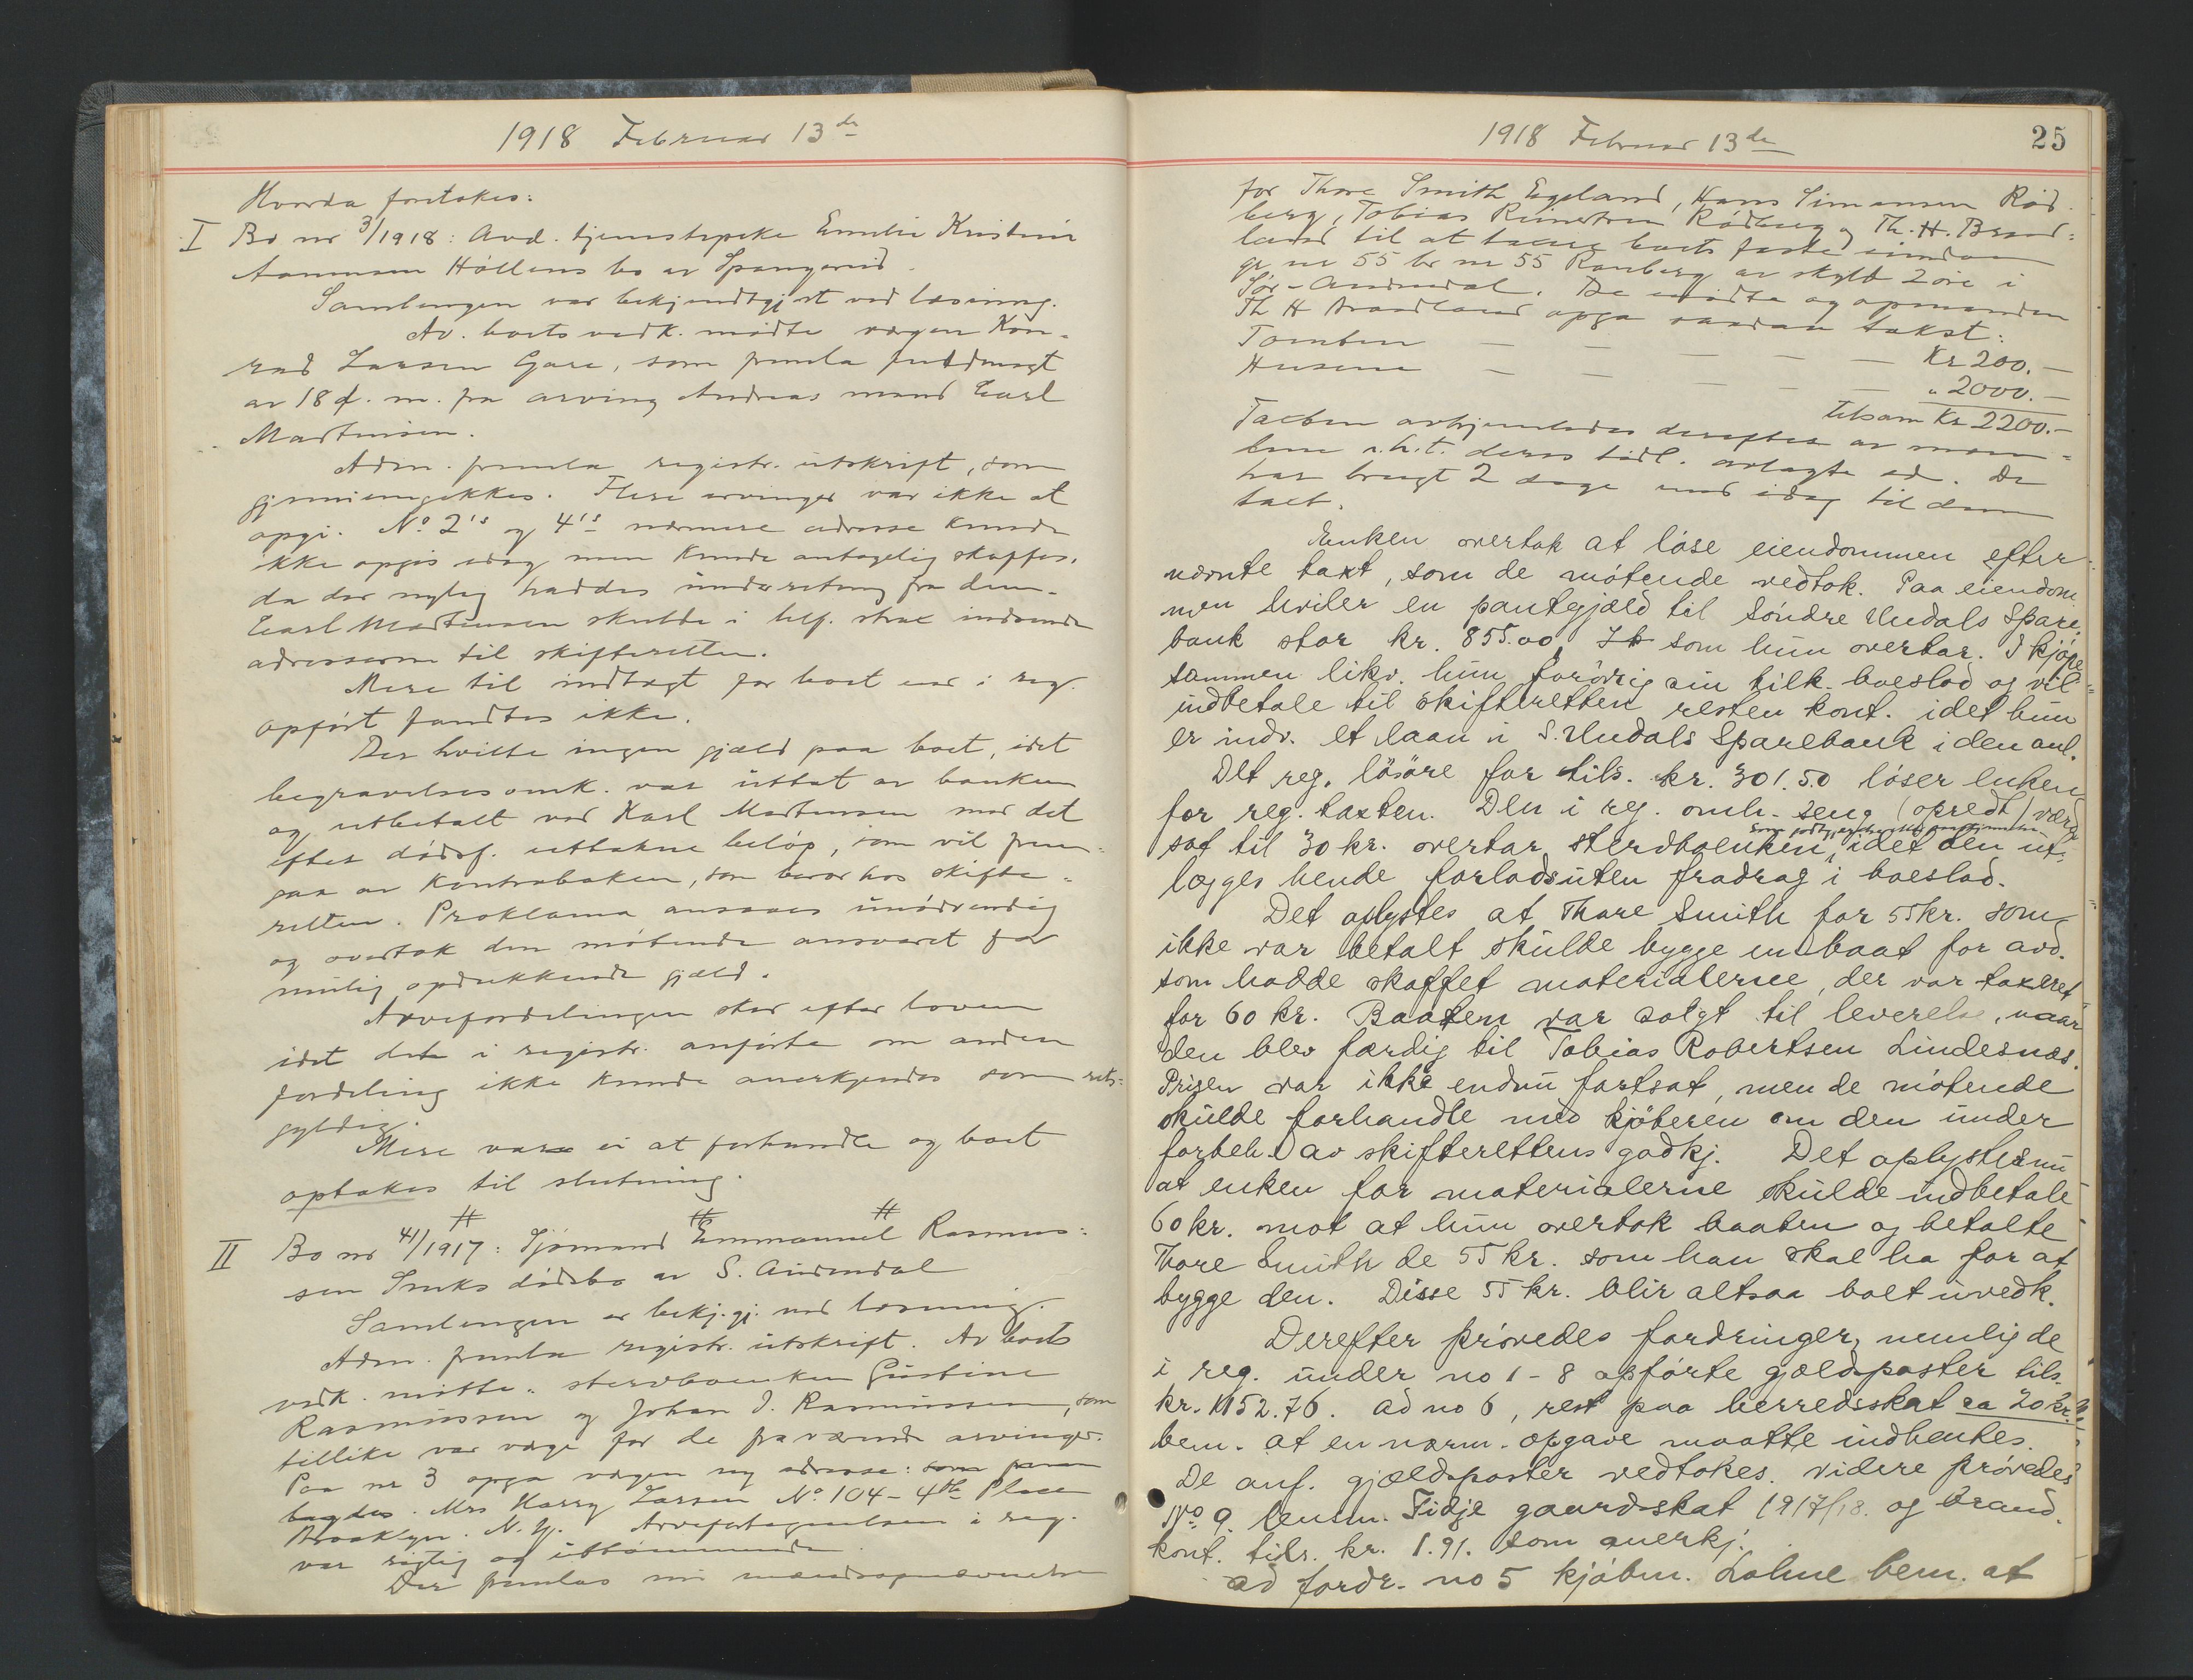 1918 Februar 13de
Hvorda foretokes:
I Bo nr 3/1918: Avd. tjenestepike Emilie Kristine
Aanensen Höllens bo av Spangereid.
Samlingen var bekjendtgjort ved læsning.
Av boets vedk. mødte vergen Kon-
rad Larsen Gare, som fremla fuldmagt
av 18 f. m. fra arving Andreas mand Carl
Martinsen.
Adm. fremla registr. utskrift, som
gjennemgikkes. Flere arvinger var ikke at
opgi. No 2's og 4's nærmere adresse kunde
ikke opgis idag men kunde antagelig skaffes,
da der nylig haddes underretning fra dem.
Carl Martinsen skulde i tilf. strax indsende
adresserne til skifteretten.
Mere til indtægt for boet end i reg.
opført fandtes ikke.
Der hvilte ingen gjæld paa boet, idet
begravelsesomk. var uttat av banken
og utbetalt ved Karl Martensen med det
efter dødsf. uttakne beløp, som vil frem-
gaa av kontraboken, som beror hos skifte-
retten. Proklama ansaaes unødvendig
og overtok den møtende ansvaret for
mulig opdukkende gjæld.
Arvefordelingen sker efter loven
idet det i registr. anførte om anden
fordeling ikke kunde anerkjendes som rets-
gyldig.
Mere var ei at forhandle og boet
optakes til slutning.
II Bo nr 41/1917: Sjømand Emmanuel Rasmus-
sen Snuks dødsbo av S. Audnedal
Samlingen er bekj.gj. ved læsning.
Adm. fremla registr. utskrift. Av boets
vedk. mötte: stervboenken Gustine
Rasmussen og Johan J. Rasmussen, som
tillike var værge for de fraværende arvinger.
Paa nr 3 opga værgen ny adresse:
Mrs Harry Larsen No 104 - 4th Place
Brooklyn. N. Y. Arvefortegnelsen i reg.
var rigtig og uttømmende.
Der fremlas nu mændsopnævnelse
1918 Februar 13de
25
for Thore Smith Egeland, Hans Simonsen Röd-
berg, Tobias Reinertsen Rødberg og Th. H. Braad-
land til at taxere boets faste eiendom
gr nr 55 br nr 55 Ramberg av skyld 2 øre i
Sör-Audnedal. De mødte og opmanden
Th H Braadland opga saadan takst:
Tomten — — — — — Kr 200.—
Husene — — — — — " 2000.—
tilsam Kr 2200.—
Taxten avhjemledes derefter av mæn-
dene i h. t. deres tidl. avlagte ed. De
har brugt 2 dage med idag til den
taxt.
Enken overtok at löse eiendommen efter
nævnte taxt, som de mötende vedtok. Paa eiendom
men hviler en pantegjæld til Söndre Undals Spare-
bank stor kr. 855.00, som hun overtar. I kjöpe
summen likv. hun forövrig sin tilk. boeslod og vil
indbetale til skifteretten resten kont. idet hun
er indv. et laan i S. Undals Sparebank i den anl.
Det reg. lösöre for tils. kr. 301.50 löser enken
for reg. taxten. Den i reg. omh. seng (opredt) værd
sat til 30 kr. overtar stervboenken, idet den ut-
lægges hende forlods uten fradrag i boeslod.
Det oplystes at Thore Smith for 55 kr. som
ikke var betalt skulde bygge en baat for avd.
som hadde skaffet materialerne, der var taxeret
for 60 kr. Baaten var solgt til leverelse, naar
den blev færdig til Tobias Robertsen Lindesnæs.
Prisen var ikke endnu fastsat, men de mötende
skulde forhandle med kjöberen om den under
forbeh. av skifterettens godkj. Det oplystes nu
at enken for materialerne skulde indbetale
60 kr. mot at hun overtok baaten og betalte
Thore Smith de 55 kr. som han skal ha for at
bygge den. Disse 55 kr. blir altsaa boet uvedk.
Derefter prövedes fordringer, nemlig de
i reg. under no 1 - 8 opförte gjældsposter tils.
kr. 1152.76. Ad no 6, rest paa herredsskat ca 20 kr.
bem. at en nærm. opgave maatte indhentes.
De anf. gjældsposter vedtokes. Videre prövedes
No 9. lensm. Fidje gaardsskat 1917/18. og brand.
kont. tils. kr. 1.91. som anerkj.
ad fordr. no 5 kjöbm. Lohne bem. at